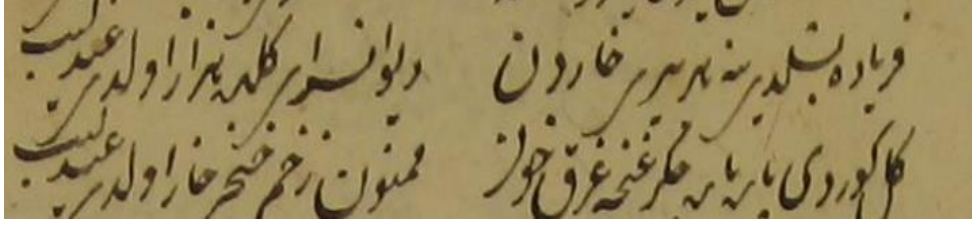 فریاده بشلدی ینه خاردن دیوانسرای کلده هزار اولدی عندلیب
کل کوردی پاره پاره جکر غنچه غرق خون ممنون زخم خنجر خار اولدی عندلیب